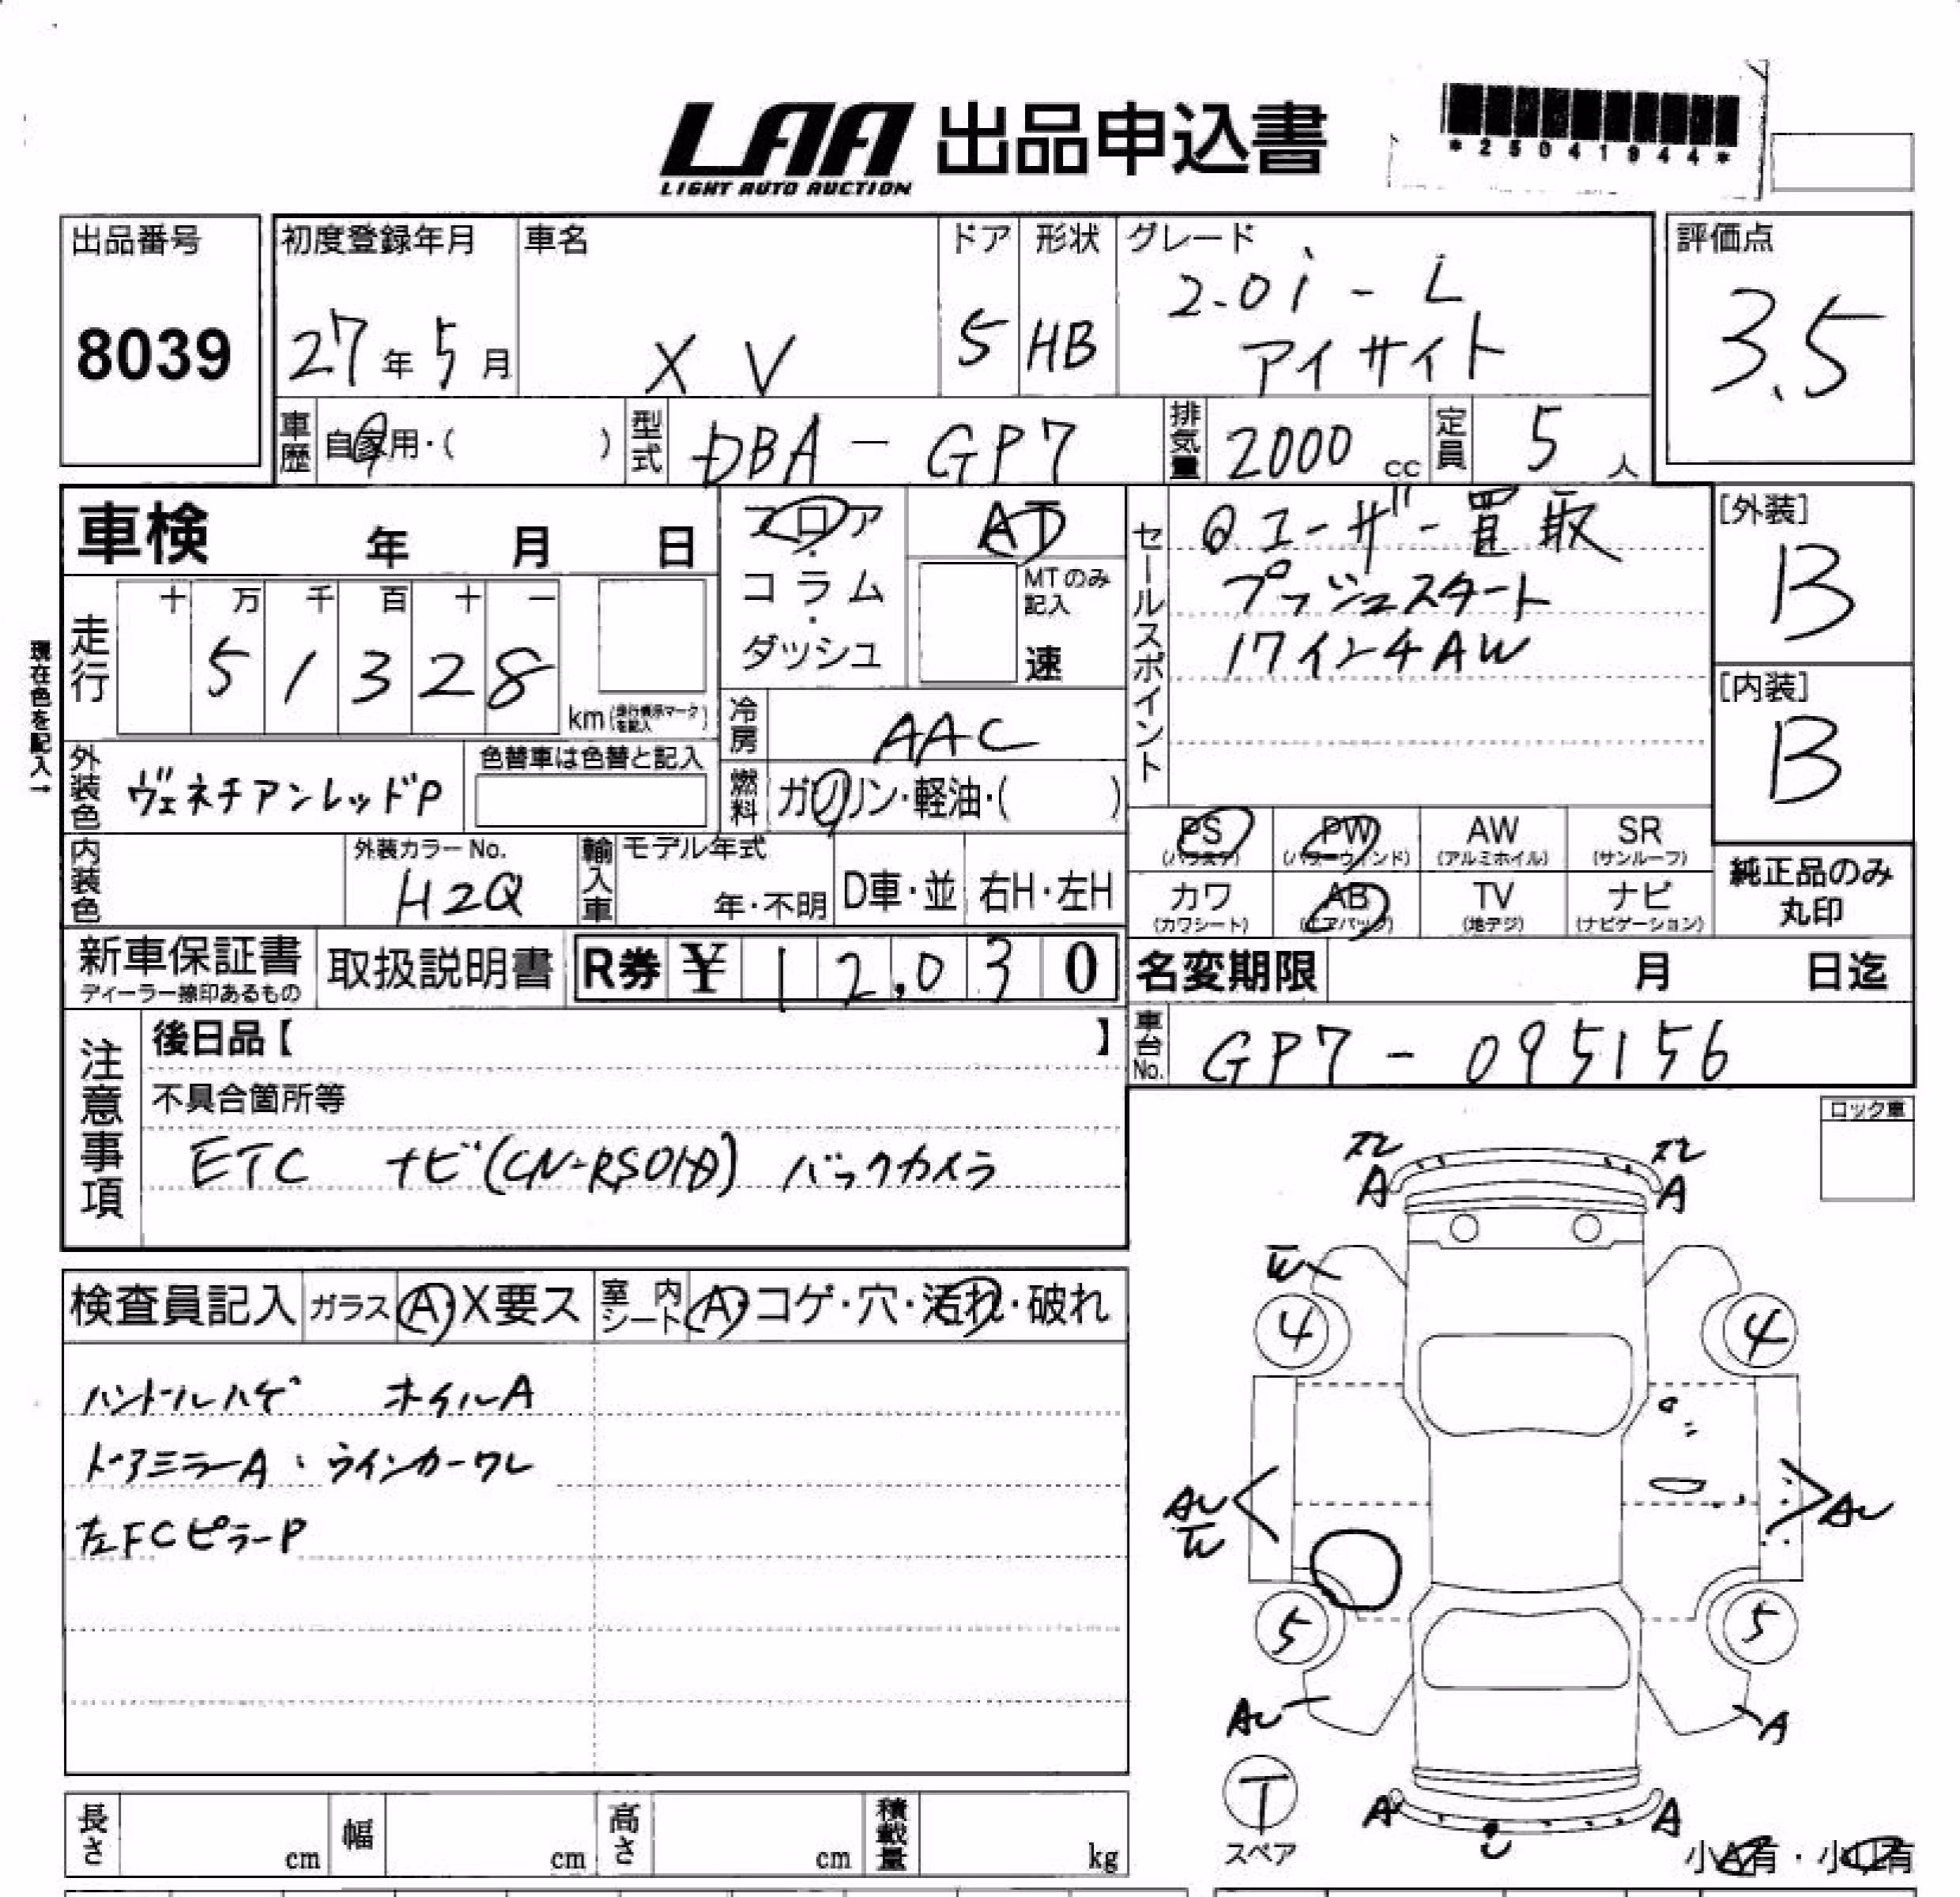 LAA 出品申込書
LIGHT AUTO AUCTION
*25041944*
出品番号
8039
初度登録年月
27年5月
車名
XV
ドア
5
形状
HB
グレード
2.0i-L
アイサイト
評価点
3.5
車歴
自家用・( )
型式
DBA-GP7
排気量
2000cc
定員
5人
車検 年 月 日
フロア・コラム・ダッシュ
AT
MTのみ記入
速
セールスポイント
ユーザー買取
プッシュスタート
17インチAW
[外装]
B
[内装]
B
現在色を記入→
走行
十 万 千 百 十 一
51328
km(走行標示マークを記入)
冷房
AAC
外装色
ヴェネチアンレッドP
色替車は色替と記入
燃料
ガソリン・軽油・( )
PS
PW
AW
SR
(パワステ)
(パワーウィンド)
(アルミホイル)
(サンルーフ)
カワ
AB
TV
ナビ
(カワシート)
(エアバッグ)
(地デジ)
(ナビゲーション)
純正品のみ
丸印
内装色
外装カラーNo.
H2Q
輸入車
モデル年式
年・不明
D車・並
右H・左H
新車保証書
ディーラー捺印あるもの
取扱説明書
R券 ¥12,030
名変期限 月 日迄
車台No.
GP7-095156
注意事項
後日品【 】
不具合箇所等
ETC ナビ(CN-RS01D) バックカメラ
ロック車
検査員記入
ガラス
A・X要ス
室内シート
A・コゲ・穴・汚れ・破れ
ハンドルハゲ ホイルA
ドアミラーA・ウインカーワレ
左FCピラーP
A
A
4
4
AU
AU
5
5
AU
A
T
スペア
A
A
小A有・小凹有
長さ cm
幅 cm
高さ cm
積載量 kg